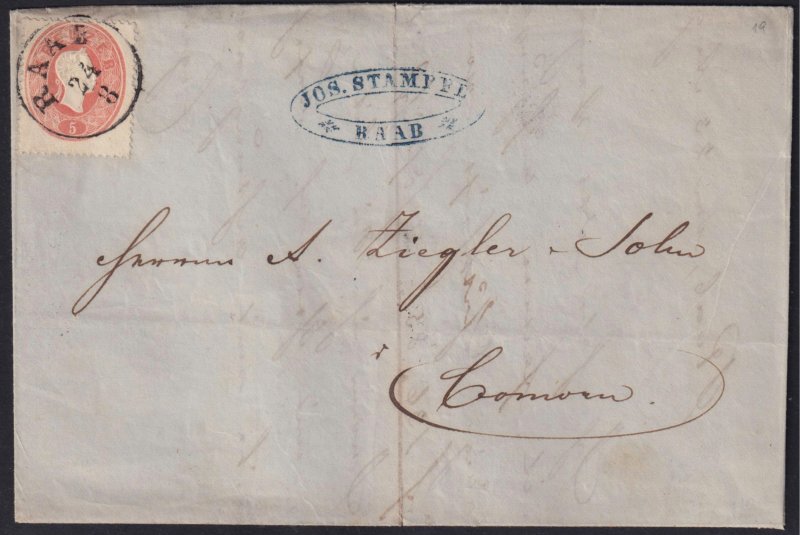 RAAB
24
8
5
JOS. STAMPFL
RAAB
Herrn A. Ziegler & Sohn
Comorn.
19